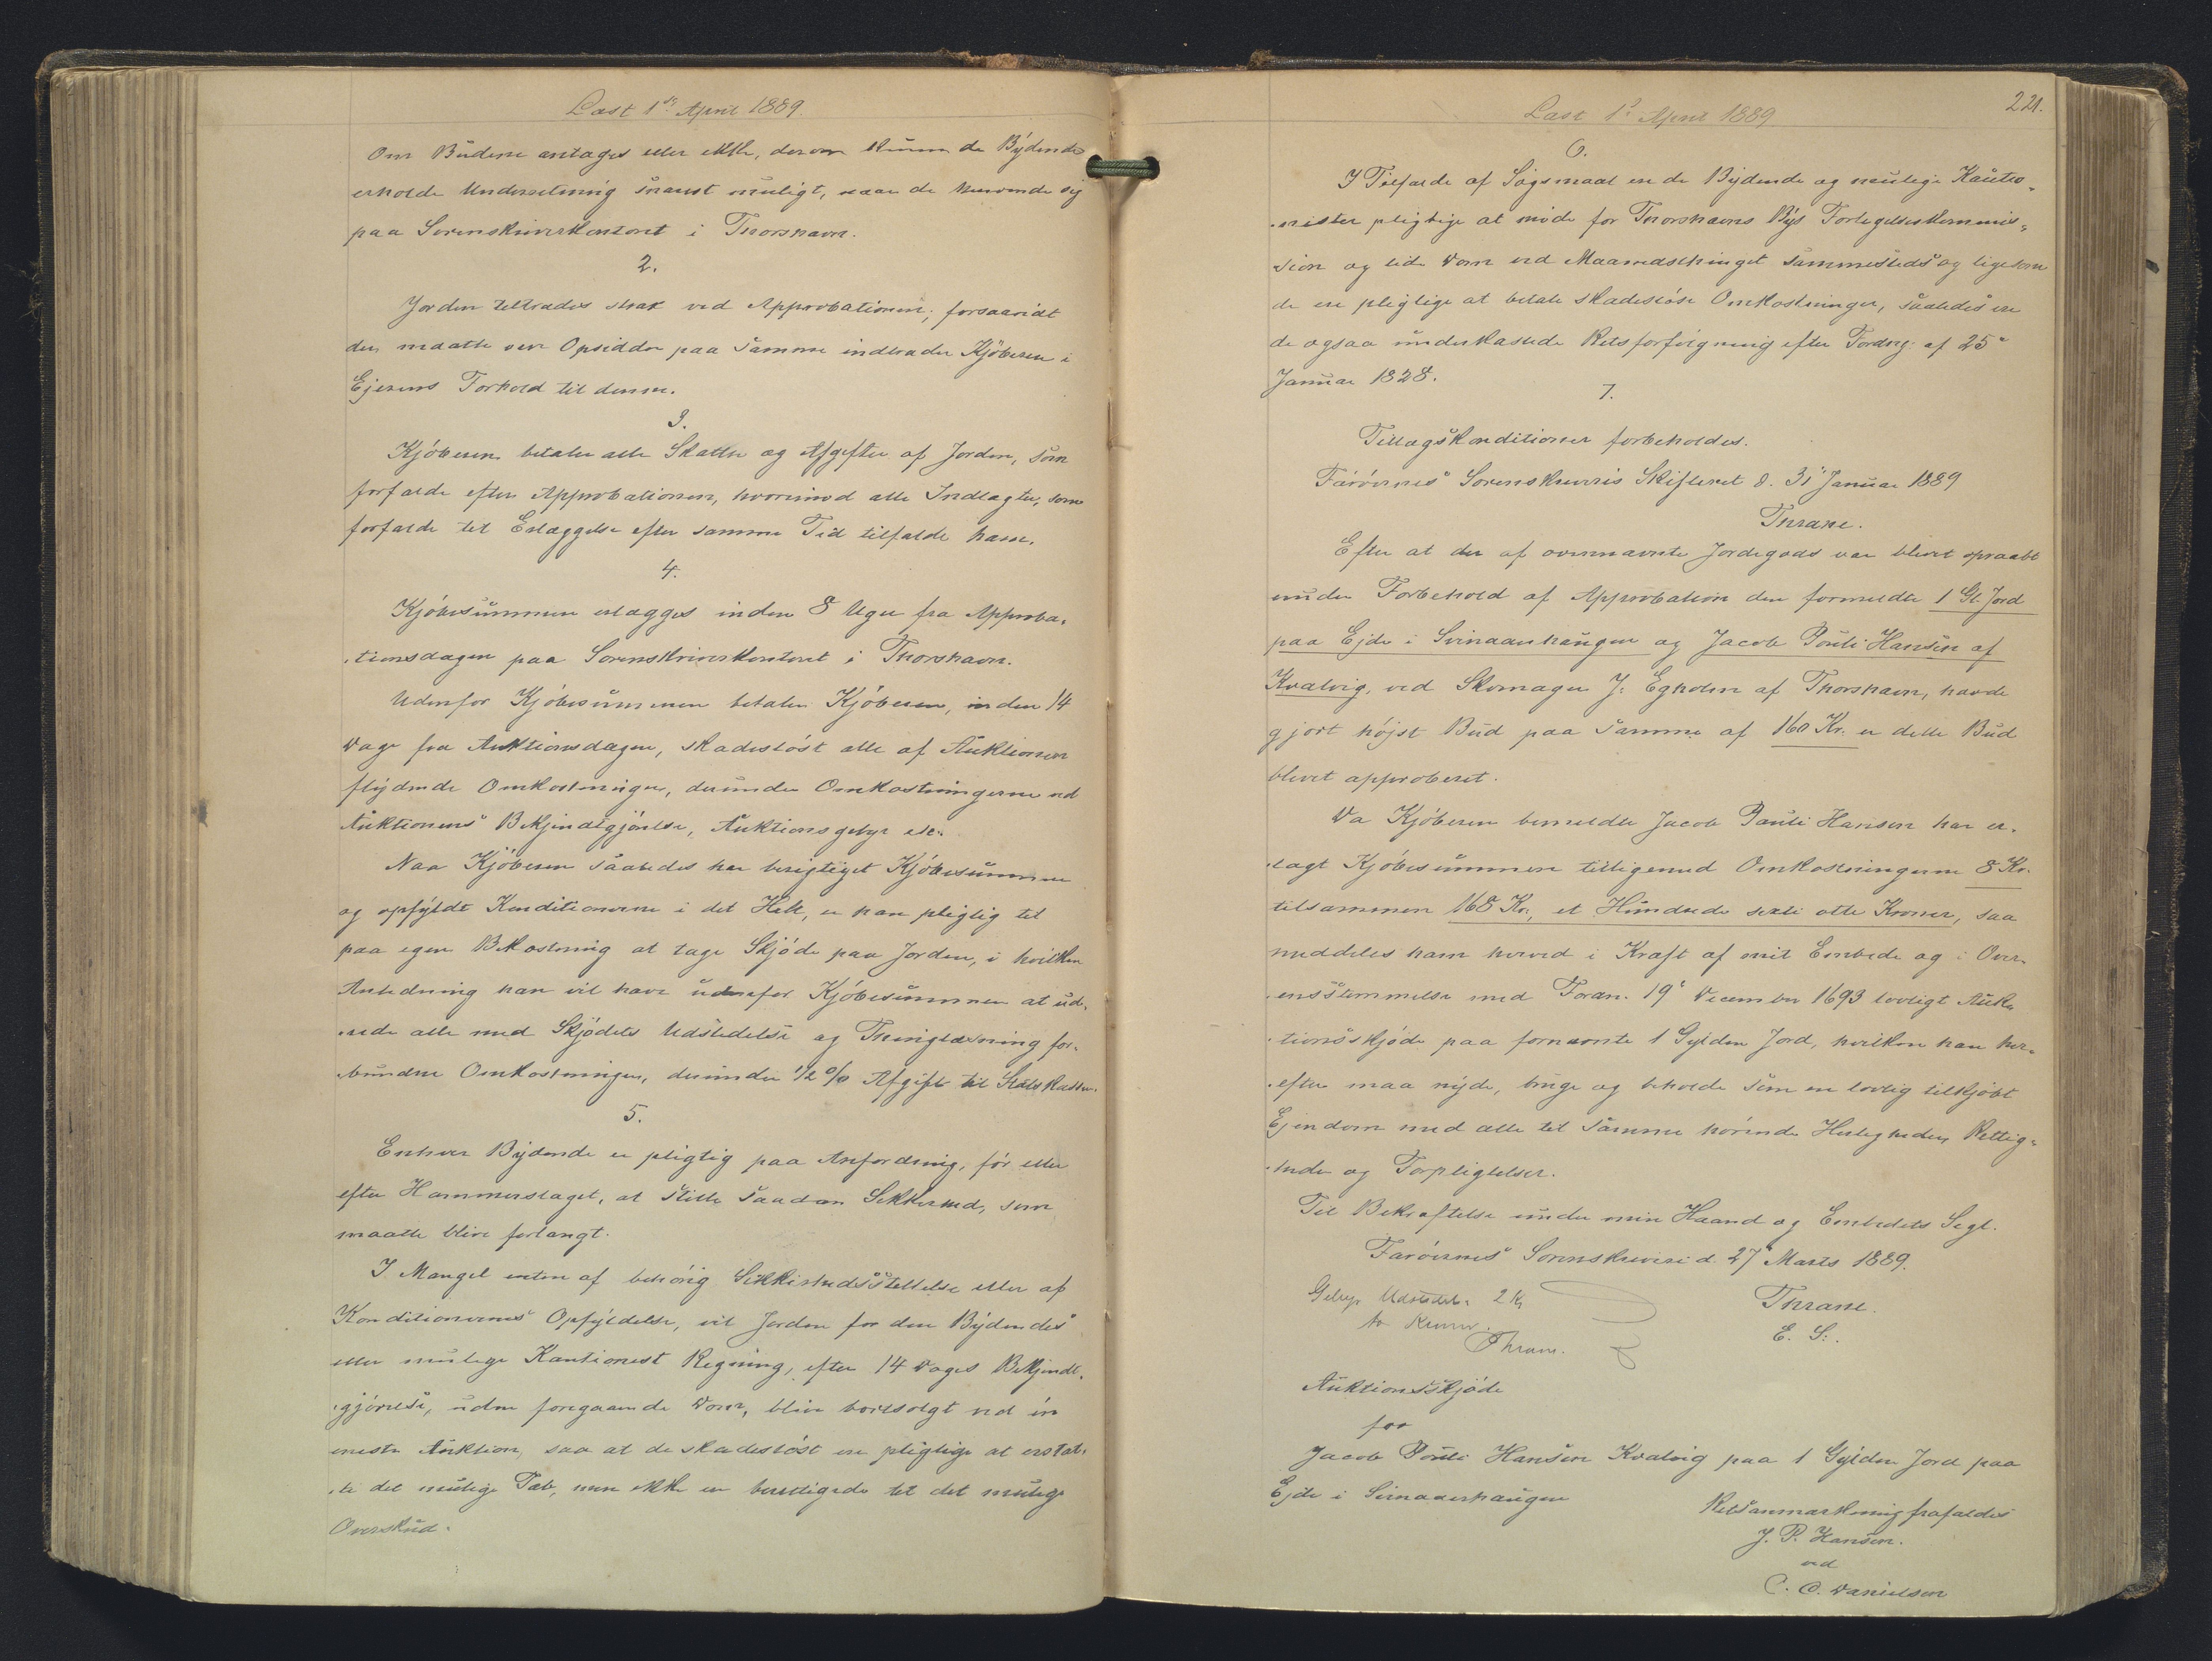 Læst 1ste April 1889.
Om Budene antages eller ikke, derom kunne de Bydende
erholde Underretning snarest muligt, naar de henvende sig
paa Sorenskriverkontoret i Thorshavn.
2.
Jorden tiltrædes strax ved Approbationen; forsaavidt
der maatte være Opsidder paa samme indtræder Kjöberen i
Ejerens Forhold til denne.
3.
Kjöberen betaler alle Skatter og Afgifter af Jorden, som
forfalde efter Approbationen, hvorimod alle Indtægter, som
forfalde til Erlæggelse efter samme Tid tilfalde ham.
4.
Kjöbesummen erlægges inden 8 Uger fra Approba-
-tionsdagen paa Sorenskriverkontoret i Thorshavn.
Udenfor Kjöbesummen betaler Kjöberen, inden 14
Dage fra Auktionsdagen, skadeslöst alle af Auktionen
flydende Omkostninger, derunder Omkostningerne ved
Auktionens Bekjendtgjörelse, Auktionsgebyr etc.
Naar Kjöberen saaledes har berigtiget Kjöbesummen
og opfyldt Konditionerne i det Hele, er han pligtig til
paa egen Bekostning at tage Skjöde paa Jorden, i hvilken
Anledning han vil have udenfor Kjöbesummen at ud-
-rede alle med Skjödets Udstedelse og Thinglæsning for-
-bundne Omkostninger, derunder 1/2 % Afgift til Statskassen.
5.
Enhver Bydende er pligtig paa Anfordring, för eller
efter Hammerslaget, at stille saadan Sikkerhed, som
maatte blive forlangt.
I Mangel enten af behörig Sikkerhedsstillelse eller af
Konditionernes Opfyldelse, vil Jorden for den Bydendes
eller mulige Kautionist Regning, efter 14 Dages Bekjendt-
-gjörelse, uden foregaaende Dom, blive bortsolgt ved én
eneste Auktion, saa at de skadeslöst ere pligtige at erstat-
-te det mulige Tab, men ikke er berettigede til det mulige
Overskud.
Læst 1ste April 1889
221.
6.
I Tilfælde af Sögsmaal ere de Bydende og mulige Kautio-
-nister pligtige at möde for Thorshavns Bys Forligelseskommis-
-sion og lide Dom ved Maanedsthinget sammesteds og ligesom
de ere pligtige at betale skadeslöse Omkostninger, saaledes ere
de ogsaa underkastede Retsforfölgning efter Fordng. af 25"
Januar 1828.
7.
Tillægskonditioner forbeholdes.
Færöernes Sorenskriveris Skifteret d. 31' Januar 1889
Thrane.
Efter at der af ovennævnte Jordegods var blevet opraabt
under Forbehold af Approbation den formeldte 1 Gl. Jord
paa Ejde i Svinaaerhaugen og Jacob Pouli Hansen af
Kvalvig, ved Skomager J. Egholm af Thorshavn, havde
gjort höjst Bud paa samme af 160 Kr. er dette Bud
blevet approberet.
Da Kjöberen bemeldte Jacob Pauli Hansen har er-
-lagt Kjöbesummen tilligemed Omkostningerne 8 Kr.
tilsammen 168 Kr., et Hundrede sexti otte Kroner, saa
meddeles ham herved i Kraft af mit Embede og i Over-
-ensstemmelse med Foran. 19' December 1693 lovligt Auk-
-tionsskjöde paa fornævnte 1 Gylden Jord, hvilken han her-
-efter maa nyde, bruge og beholde som en lovlig tilkjöbt
Ejendom med alle til samme hörende Herligheder, Rettig-
-heder og Forpligtelser.
Til Bekræftelse under min Haand og Embedets Segl.
Færöernes Sorenskriveri d. 27' Marts 1889.
Gebyr Udstedels. 2 Kr
to Kroner.
Thrane.
Thrane.
E. S.
Auktionsskjöde
for
Jacob Pouli Hansen Kvalvig paa 1 Gylden Jord paa
Ejde i Svinaaerhaugen
Retsanmærkning frafaldes
J. P. Hansen.
ved
C. C. Danielsen